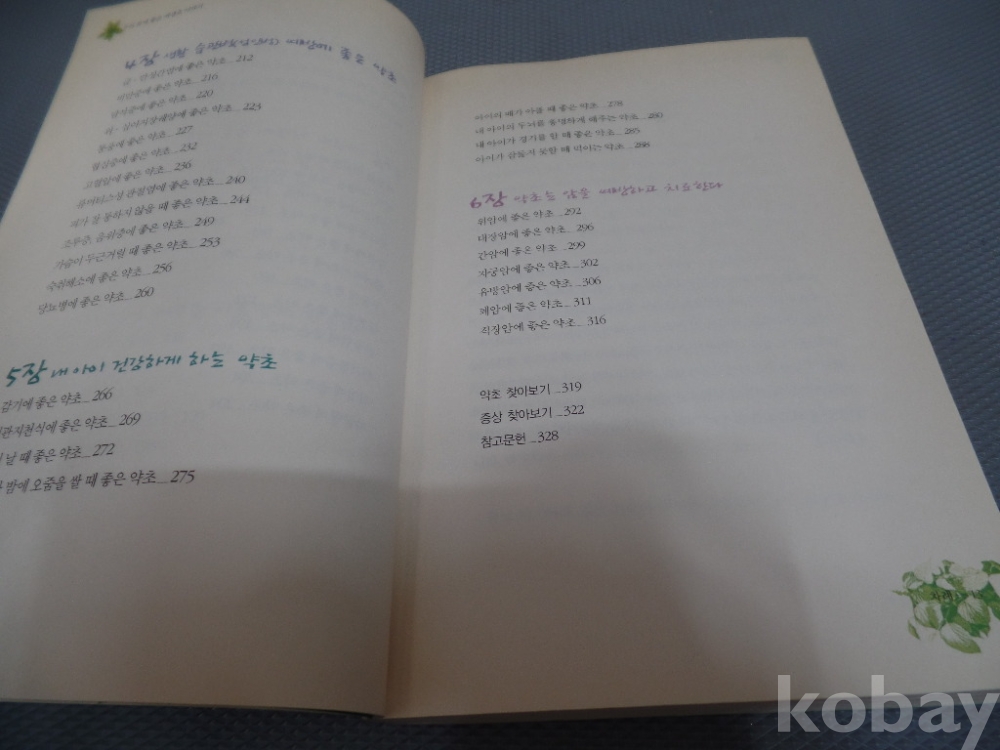 4장 생활 습관병(성인병) 예방에 좋은 약초
간·만성간염에 좋은 약초_212
비만증에 좋은 약초_216
좋은 약초_220
위·십이지장궤양에 좋은 약초_223
통풍에 좋은 약초_227
협심증에 좋은 약초_232
고혈압에 좋은 약초_236
류머티스성 관절염에 좋은 약초_240
피가 잘 통하지 않을 때 좋은 약초_244
조루증, 음위증에 좋은 약초_249
가슴이 두근거릴 때 좋은 약초_253
숙취해소에 좋은 약초_256
당뇨병에 좋은 약초_260
5장 내 아이 건강하게 하는 약초
감기에 좋은 약초_266
관지천식에 좋은 약초_269
날 때 좋은 약초_272
밤에 오줌을 쌀 때 좋은 약초_275
아이의 배가 아플 때 좋은 약초_278
내 아이의 두뇌를 총명하게 해주는 약초_280
내 아이가 경기를 할 때 좋은 약초_285
아이가 잠들지 못할 때 먹이는 약초_288
6장 약초는 암을 예방하고 치료한다
위암에 좋은 약초_292
대장암에 좋은 약초_296
간암에 좋은 약초_299
자궁암에 좋은 약초_302
유방암에 좋은 약초_306
폐암에 좋은 약초_311
직장암에 좋은 약초_316
약초 찾아보기_319
증상 찾아보기_322
참고문헌_328
kobay